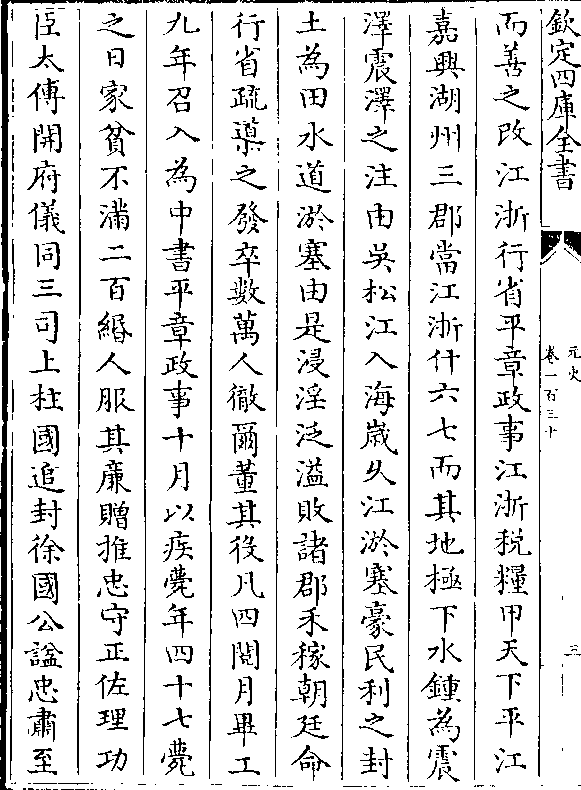 欽定四庫全書
元史
卷一百三十
三
而善之改江浙行省平章政事江浙稅糧甲天下平江
嘉興湖州三郡當江浙什六七而其地極下水鍾為震
澤震澤之注由吳松江入海歲久江淤塞豪民利之封
土為田水道淤塞由是浸淫泛溢敗諸郡禾稼朝廷命
行省疏𨗳之發卒數萬人徹爾董其役凡四閱月畢工
九年召入為中書平章政事十月以疾薨年四十七薨
之日家貧不滿二百緡人服其廉贈推忠守正佐理功
臣太傅開府儀同三司上柱國追封徐國公諡忠肅至